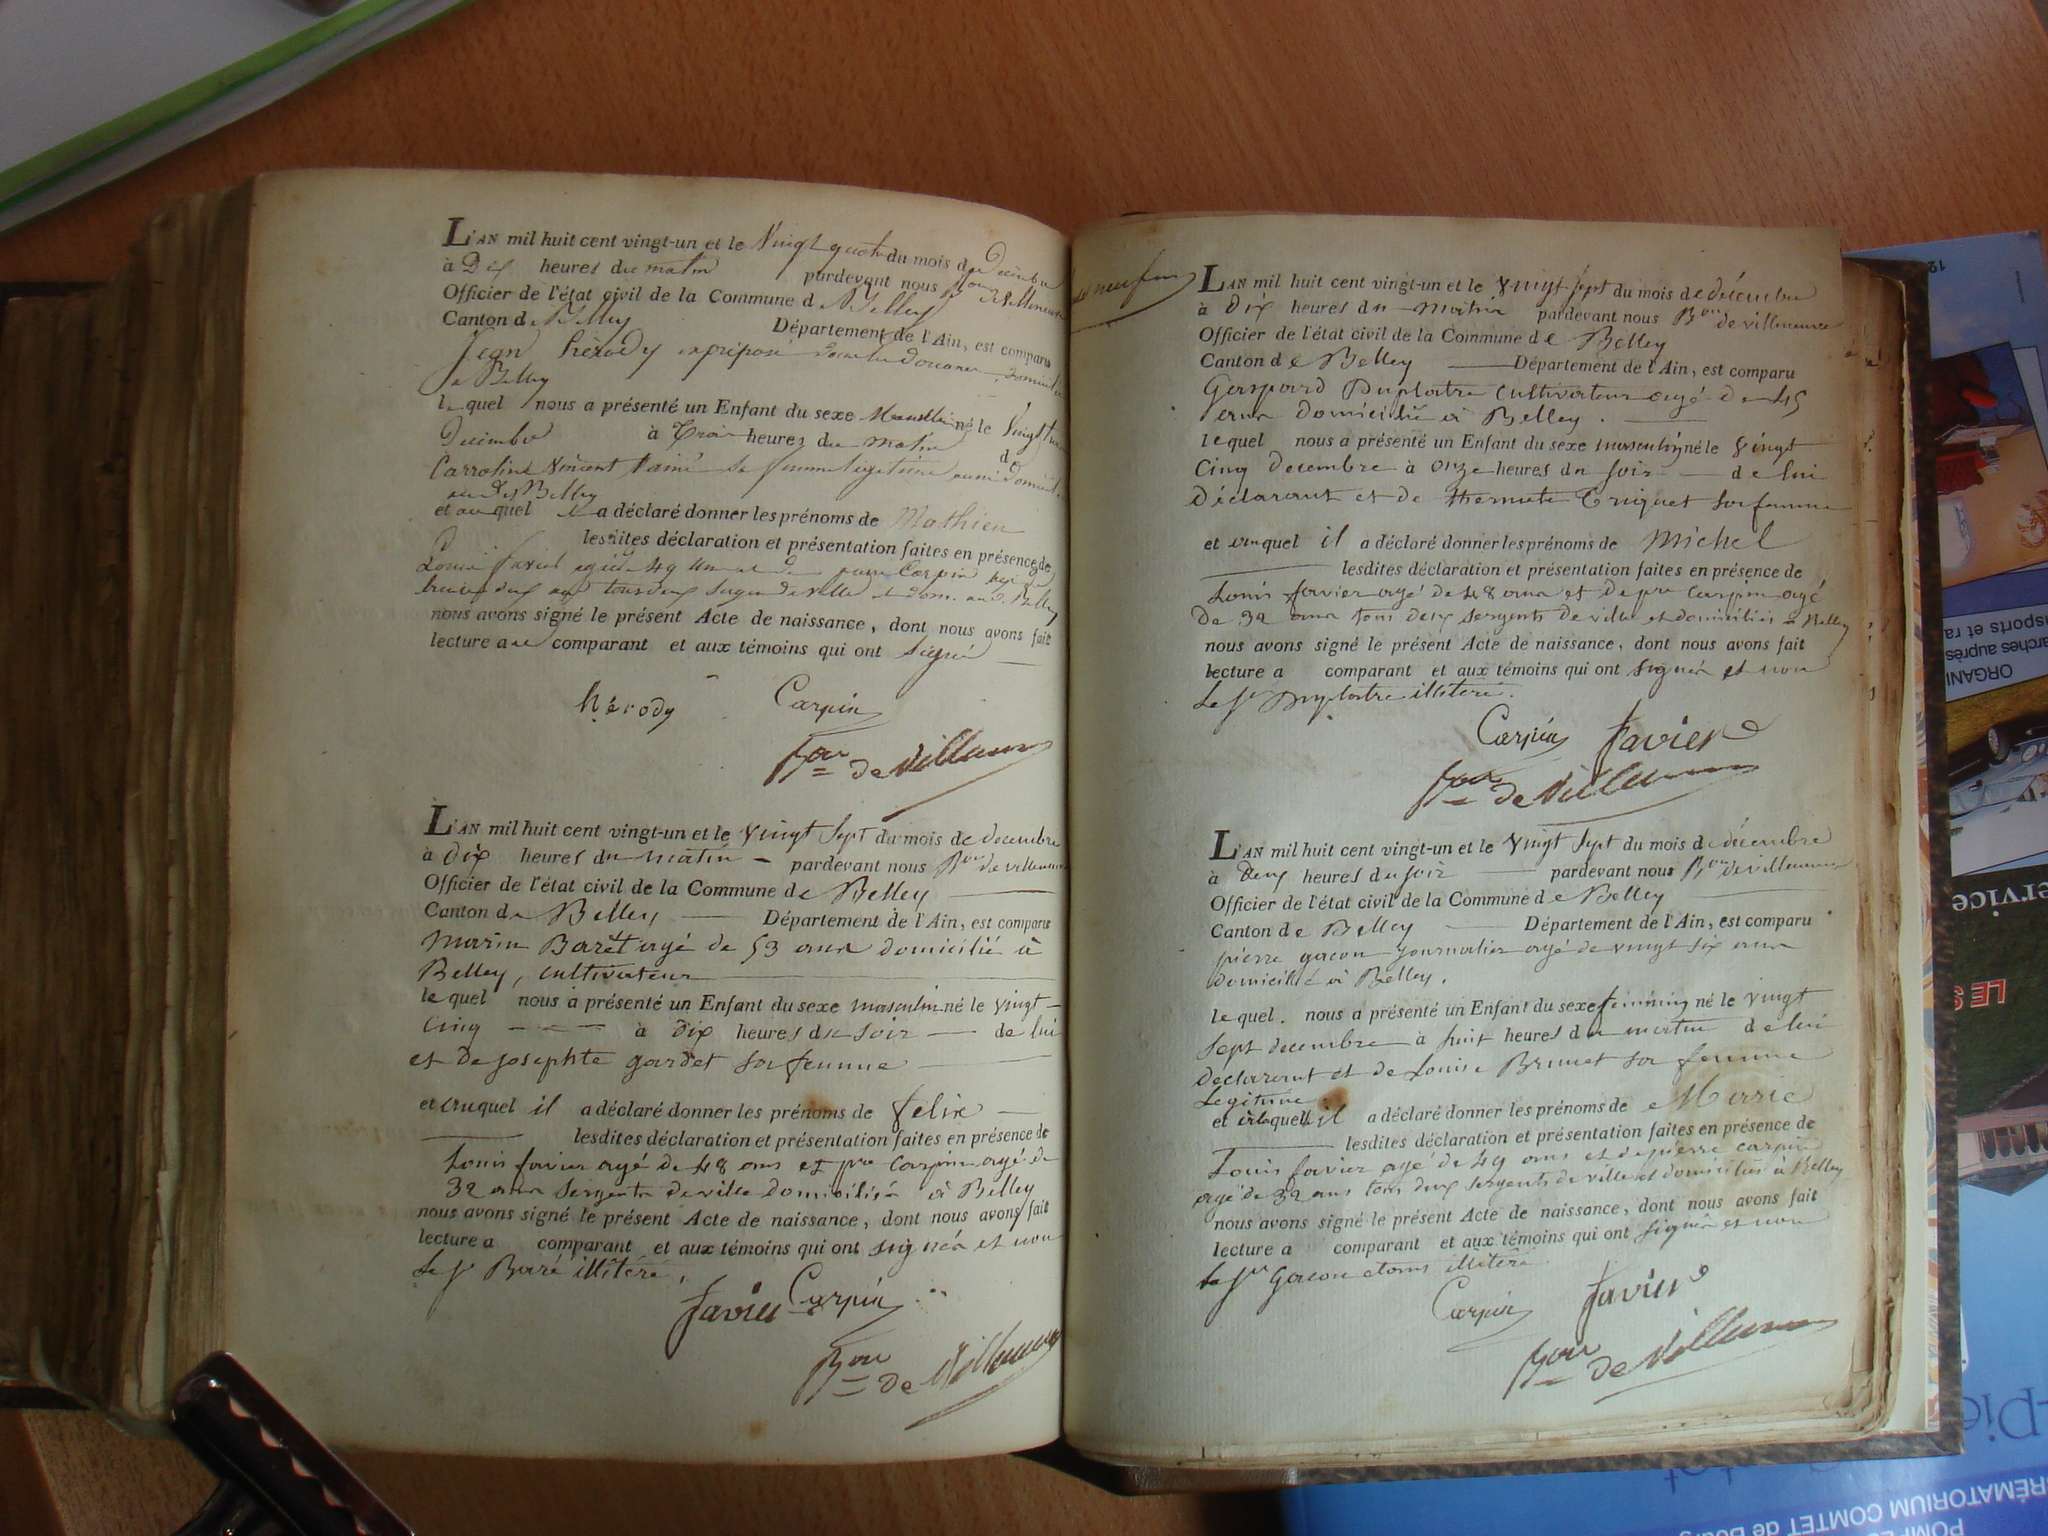 L'AN mil huit cent vingt-un et le Vingt quatre du mois de Decembre
à Dix heures du matin pardevant nous
Officier de l'état civil de la Commune de Belley
Canton de Belley Département de l'Ain, est comparu
Jean hérody préposé domicilié
à Belley
lequel nous a présenté un Enfant du sexe Masculin né le Vingt
Decembre à Trois heures du matin
Carroline Vincent sa femme légitime
Belley
et auquel il a déclaré donner les prénoms de Mathieu
lesdites déclaration et présentation faites en présence de
Louis favier agé de 49 ans et de Carpin agé de
trente deux ans tous deux de ville et dom. Belley
nous avons signé le présent Acte de naissance, dont nous avons fait
lecture au comparant et aux témoins qui ont signé
hérody Carpin
Bon de Villeneuve
L'AN mil huit cent vingt-un et le vingt sept du mois de decembre
à dix heures du matin pardevant nous Bon de villeneuve
Officier de l'état civil de la Commune de Belley
Canton de Belley Département de l'Ain, est comparu
marin Barét agé de 53 ans domicilié à
Belley, cultivateur
lequel nous a présenté un Enfant du sexe masculin né le vingt
Cinq à dix heures du soir de lui
et de josephte gardet sa femme
et auquel il a déclaré donner les prénoms de felix
lesdites déclaration et présentation faites en présence de
Louis favier agé de 48 ans et pre Carpin agé de
32 ans sergents de ville domiciliés à Belley
nous avons signé le présent Acte de naissance, dont nous avons fait
lecture a comparant et aux témoins qui ont signés et non
le sr Baré illiteré.
favier Carpin
Bon de Villeneuve
L'AN mil huit cent vingt-un et le vingt sept du mois de décembre
à dix heures du matin pardevant nous Bon de villeneuve
Officier de l'état civil de la Commune de Belley
Canton de Belley Département de l'Ain, est comparu
Gaspard Duplatre Cultivateur agé de 45
ans domicilié à Belley.
lequel nous a présenté un Enfant du sexe masculin né le vingt
Cinq decembre à onze heures du soir de lui
Déclarant et de Triquet sa femme
et auquel il a déclaré donner les prénoms de Michel
lesdites déclaration et présentation faites en présence de
Louis favier agé de 48 ans et de pre Carpin agé
De 32 ans tous deux sergents de ville et domiciliés à Belley
nous avons signé le présent Acte de naissance, dont nous avons fait
lecture a comparant et aux témoins qui ont signés et non
Le sr Duplatre illiteré.
Carpin favier
Bon de Villeneuve
L'AN mil huit cent vingt-un et le vingt sept du mois de décembre
à deux heures du soir pardevant nous Bon de villeneuve
Officier de l'état civil de la Commune de Belley
Canton de Belley Département de l'Ain, est comparu
pierre gacon journalier agé de vingt six ans
domicilié à Belley.
lequel. nous a présenté un Enfant du sexe féminin né le vingt
sept decembre à huit heures du matin de lui
déclarant et de Louise Brunet sa femme
Legitime
et àlaquelle il a déclaré donner les prénoms de Marie
lesdites déclaration et présentation faites en présence de
Louis favier agé de 49 ans et de pierre carpin
agé de 32 ans tous deux sergents de ville et domiciliés à Belley
nous avons signé le présent Acte de naissance, dont nous avons fait
lecture a comparant et aux témoins qui ont signés et non
le sr Gacon illiteré
Carpin favier
Bon de Villeneuve
ORGANI
arches auprès
nsports et ra
ervice
LE S
CRÉMATORIUM COMTET de Bourg